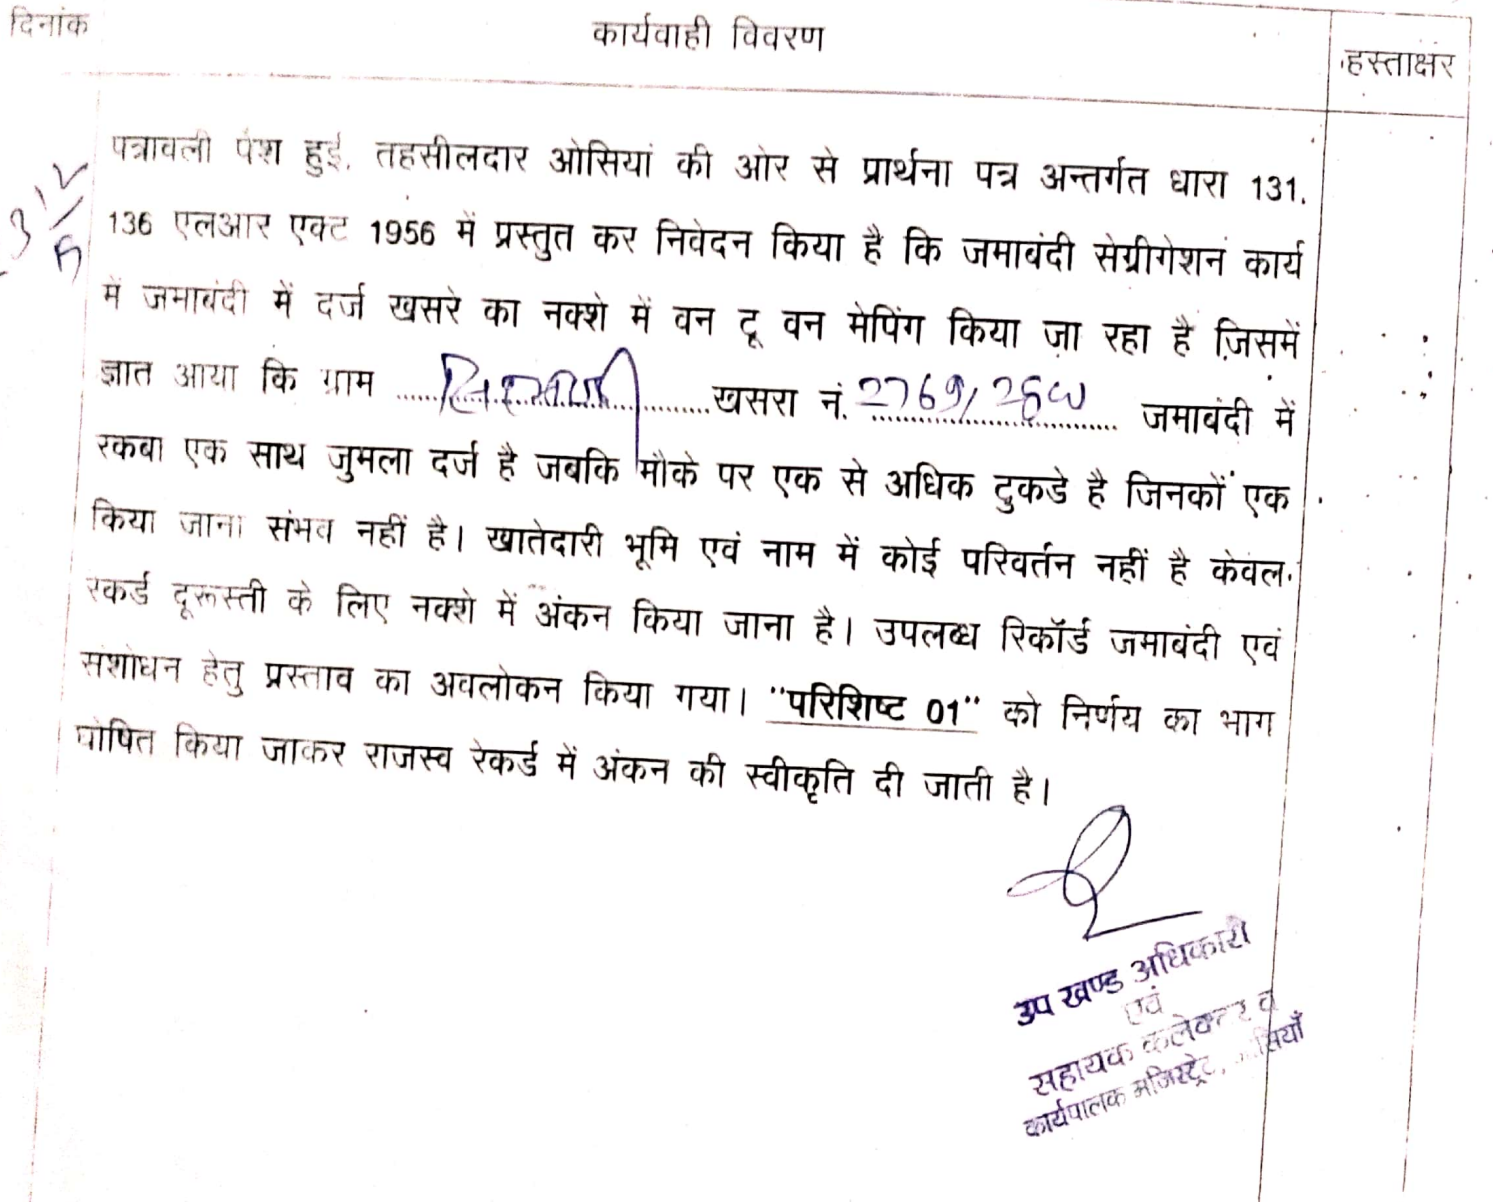 दिनांक
कार्यवाही विवरण
हस्ताक्षर
पत्रावली पेश हुई, तहसीलदार ओसियां की ओर से प्रार्थना पत्र अन्तर्गत धारा 131,
136 एलआर एक्ट 1956 में प्रस्तुत कर निवेदन किया है कि जमाबंदी सेग्रीगेशन कार्य
में जमाबंदी में दर्ज खसरे का नक्शे में वन टू वन मेपिंग किया जा रहा है जिसमें
ज्ञात आया कि ग्राम .................... खसरा नं. 2769/ .................... जमाबंदी में
रकबा एक साथ जुमला दर्ज है जबकि मौके पर एक से अधिक टुकडे है जिनकों एक
किया जाना संभव नहीं है। खातेदारी भूमि एवं नाम में कोई परिवर्तन नहीं है केवल
रकर्ड दूरूस्ती के लिए नक्शे में अंकन किया जाना है। उपलब्ध रिकॉर्ड जमाबंदी एवं
संशोधन हेतु प्रस्ताव का अवलोकन किया गया। "परिशिष्ट 01" को निर्णय का भाग
घोषित किया जाकर राजस्व रेकर्ड में अंकन की स्वीकृति दी जाती है।
उप खण्ड अधिकारी
एवं
सहायक कलेक्टर व
कार्यपालक मजिस्ट्रेट,